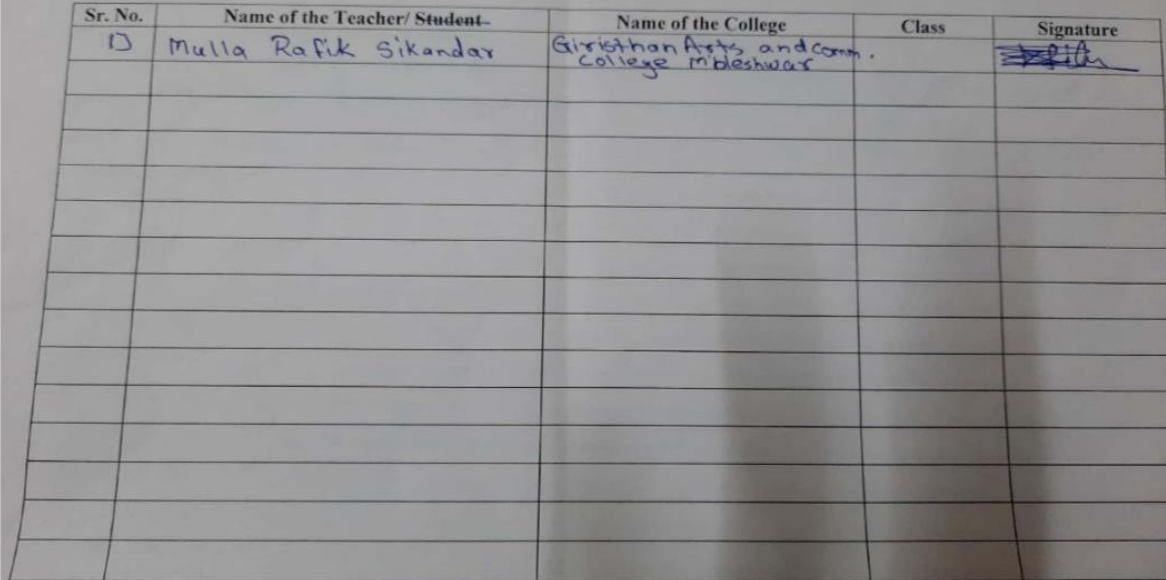 Sr. No. Name of the Teacher/ Student Name of the College Class Signature
1) Mulla Rafik Sikandar Giristhan Arts and comm.
College M'bleshwar